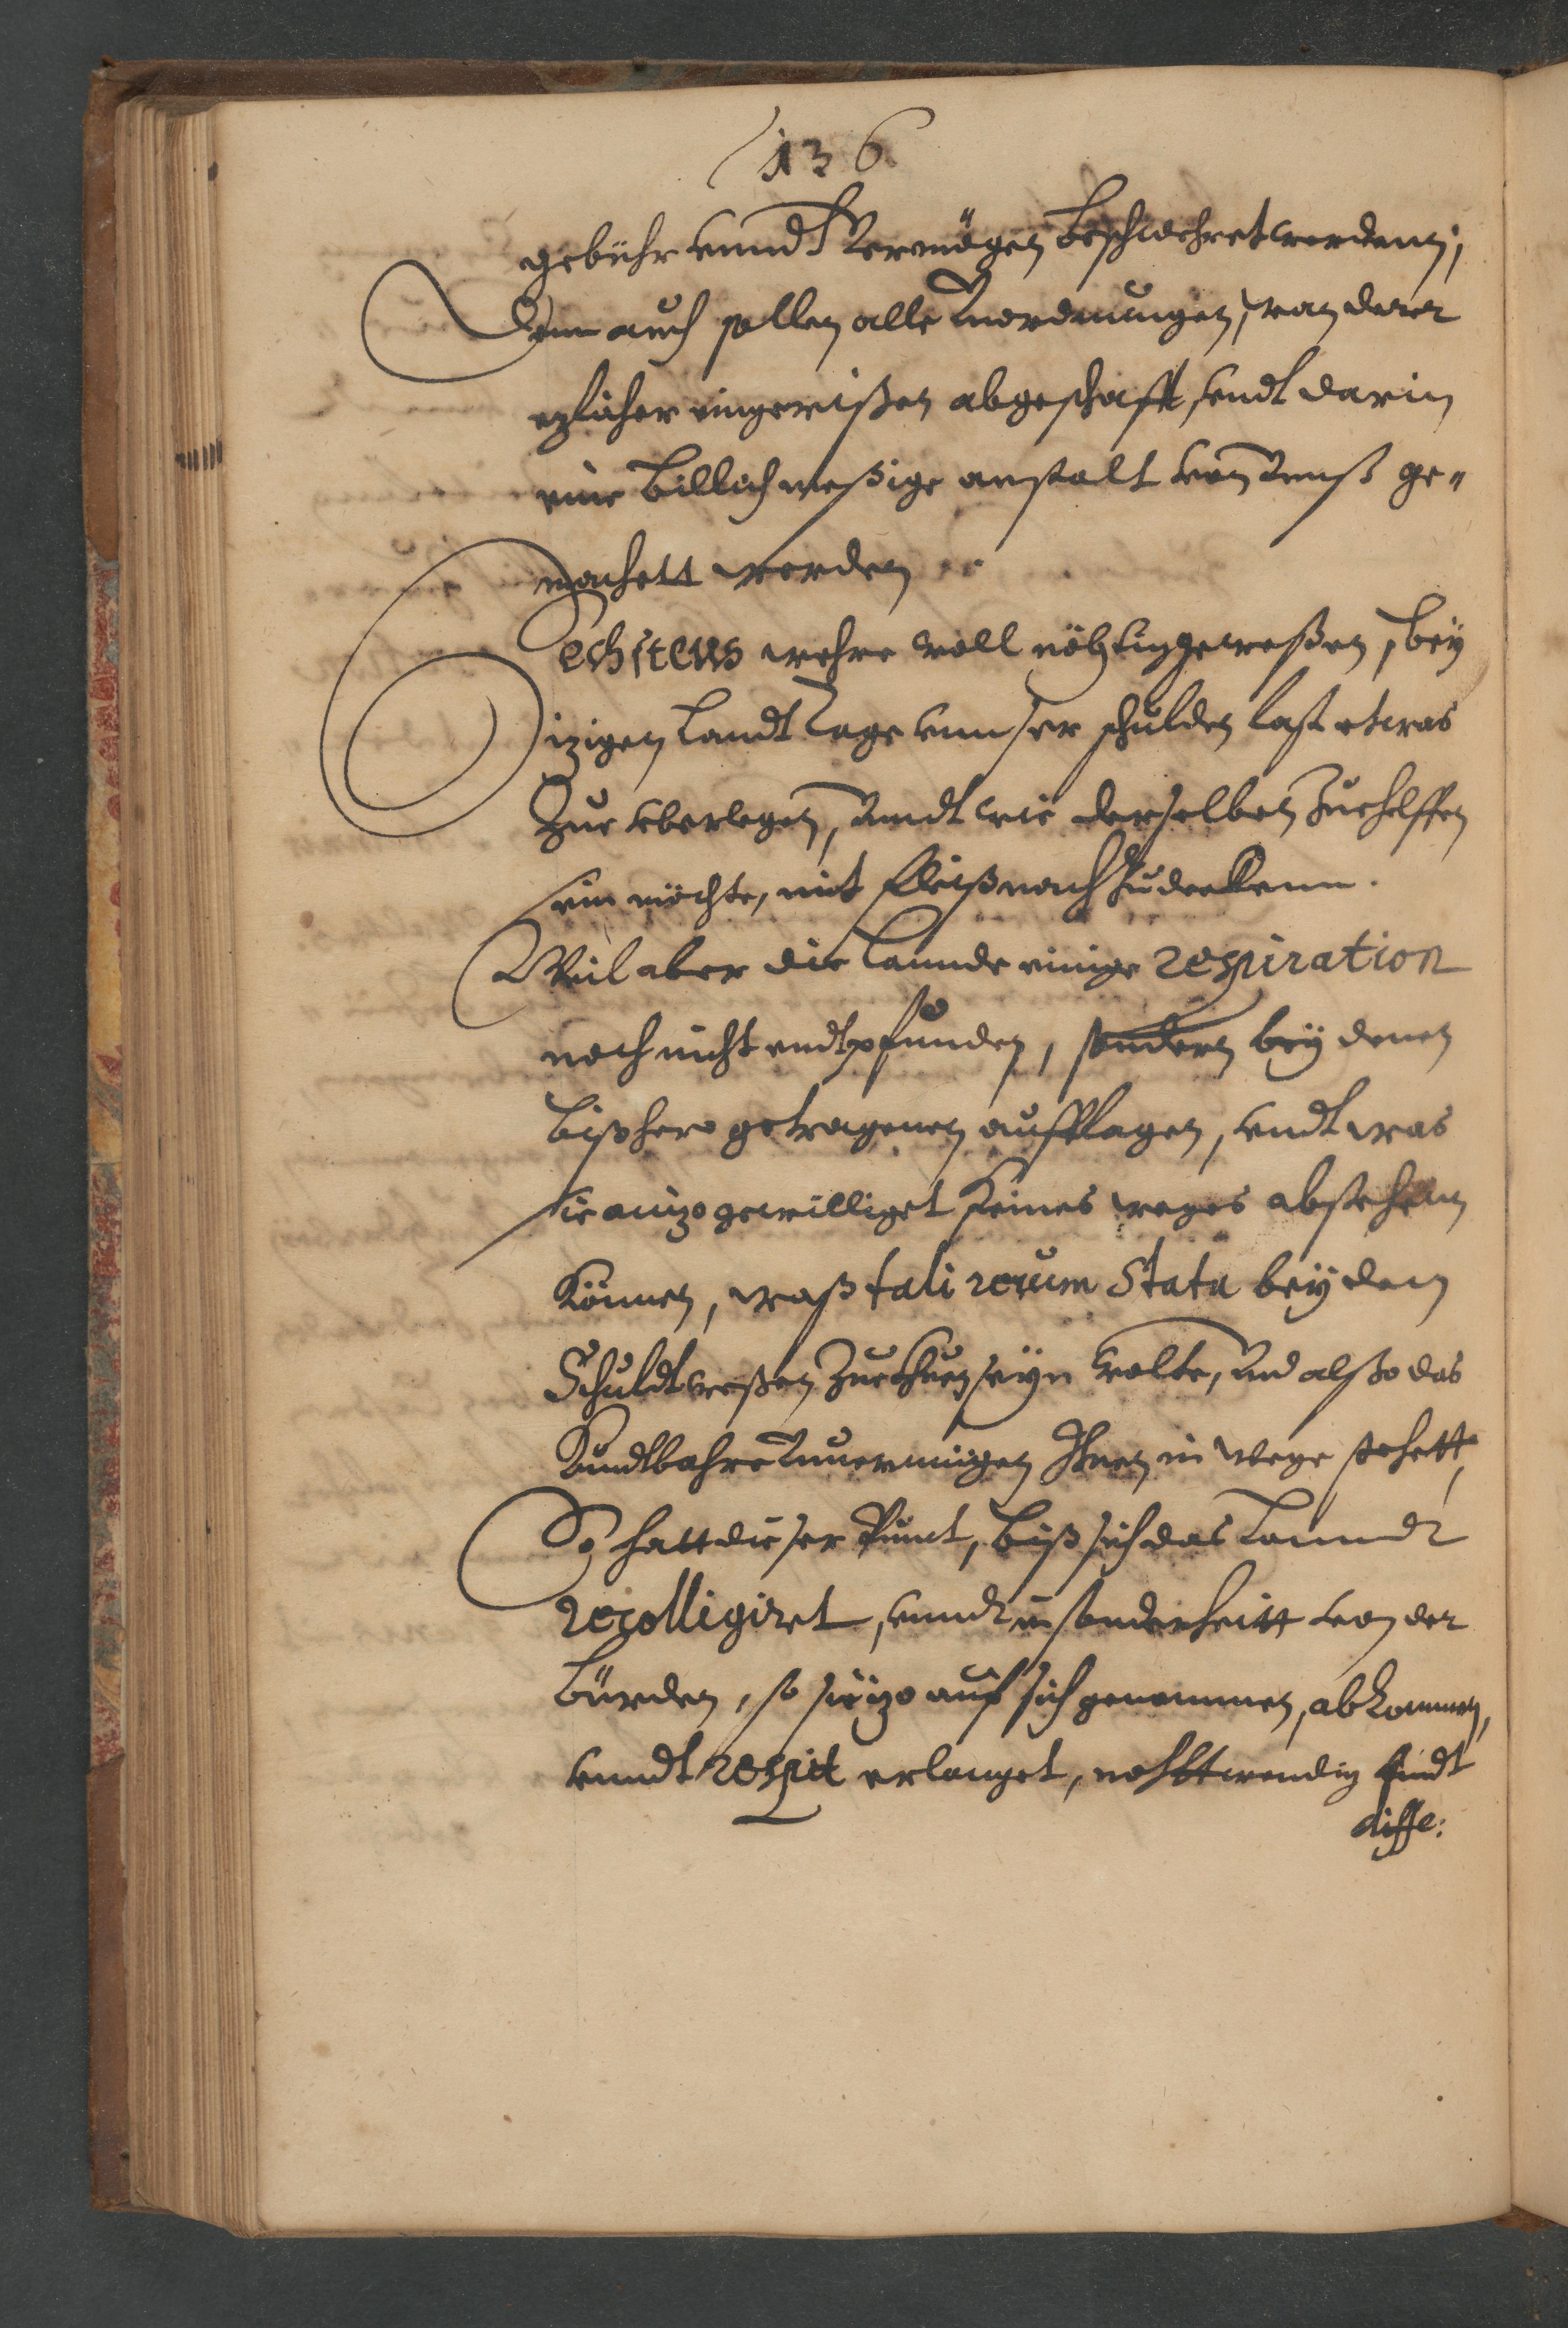 136
gebühr vnndt Vermögen beschwehret werdenn;
Denn auch sollen alle Vnordnungen, wan derer
ezlicher eingerißen abgeschafft, vndt darin
eine billichmeßige anstalt von Vnß ge„
machett werden
Sechstens wehre woll nöhtig geweßen, bey
izigen Landt Tage vnnser schulden last etwas
Zue vberlegen, Vnndt wie derselben Zuehelffen
sein möchte, mit Fleiß nach Zudenkenn.
Weil aber die Lannde einige respiration
noch nicht endtpfunden, sondern bey denen
bißhero getragenen aufflagen, vndt was
sie anizo gewilliget keines weges abstehenn
Können, waß tali rerum Statu bey dem
Schuldtweßen Zuethuen seyn wolte, Vnd alßo das
Kundtbahre Vnuermügen Ihnen in Wege stehett,
So hatt dieser Punct, biß sich das Lanndt
recolligiret, vnndt in sonderheitt von der
bürden, so sie izo auf sich genommen, abkommen,
vnndt respit erlanget, nohttwendig Eindt
diffe: